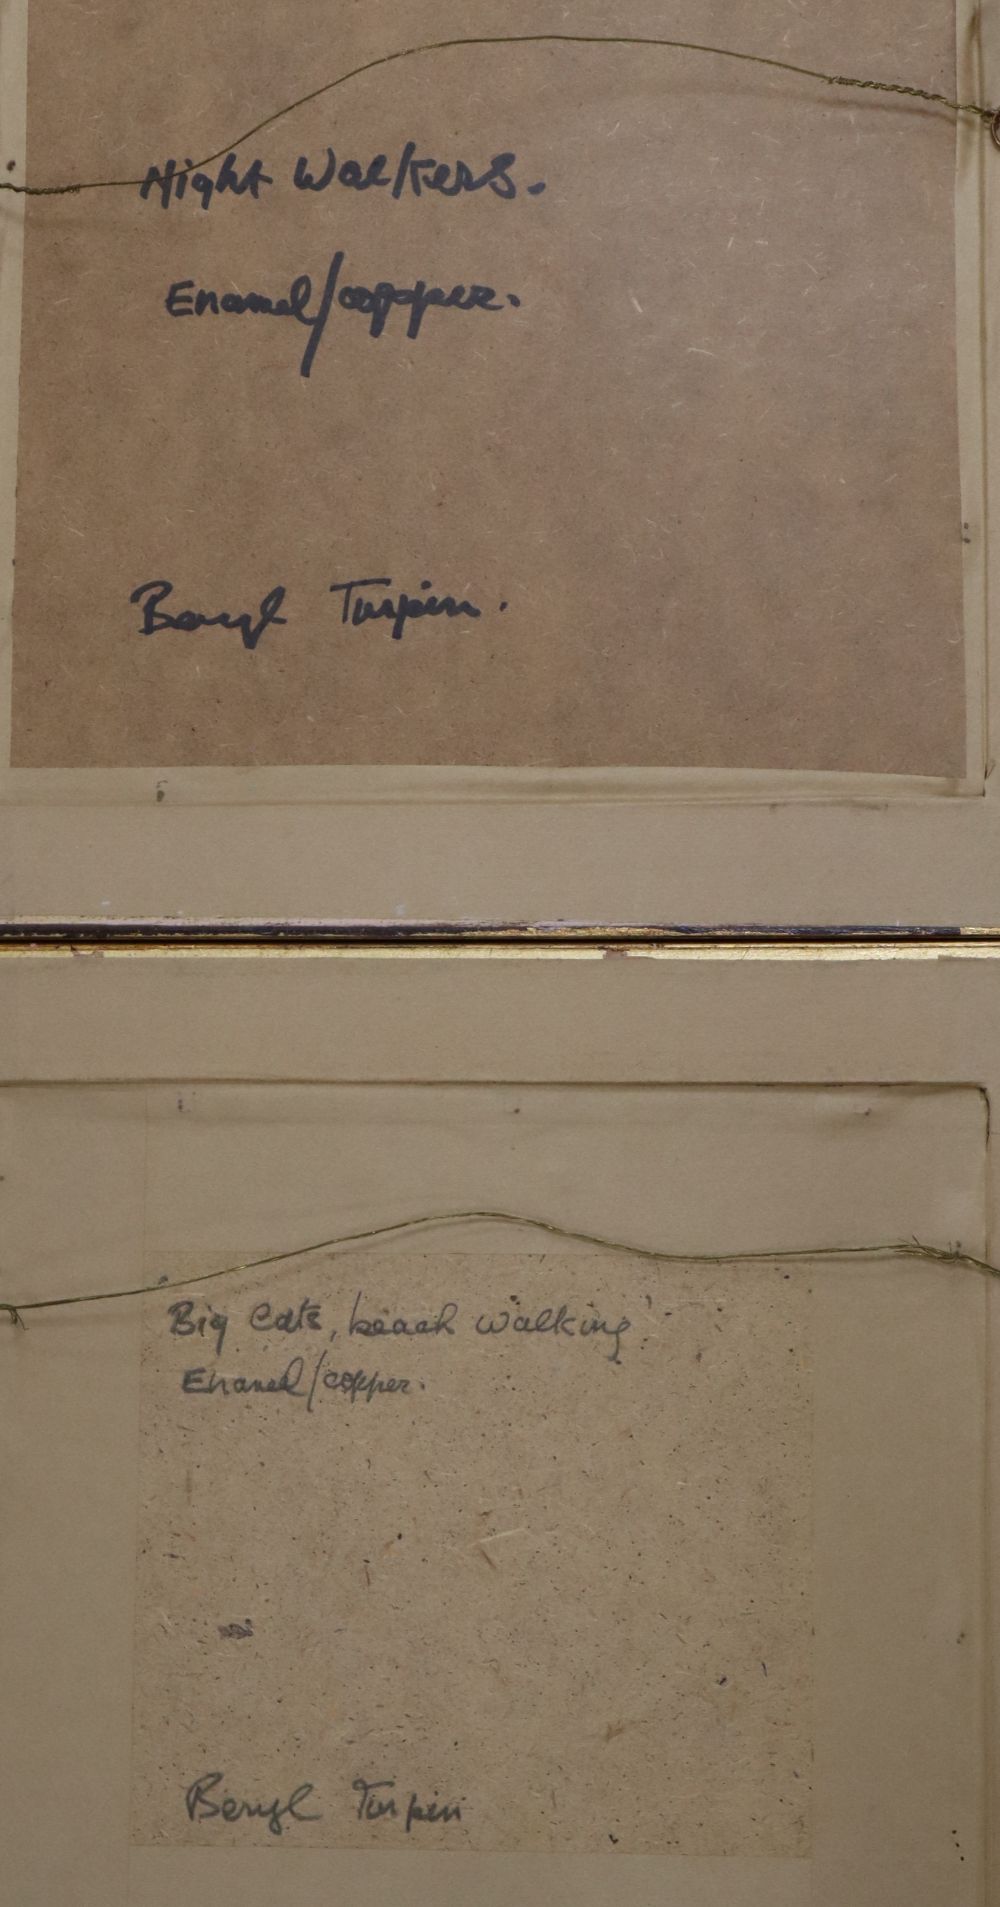 Night Walkers.
Enamel/copper.
Beryl Turpin.
Big Cats, beach walking'
Enamel/copper.
Beryl Turpin